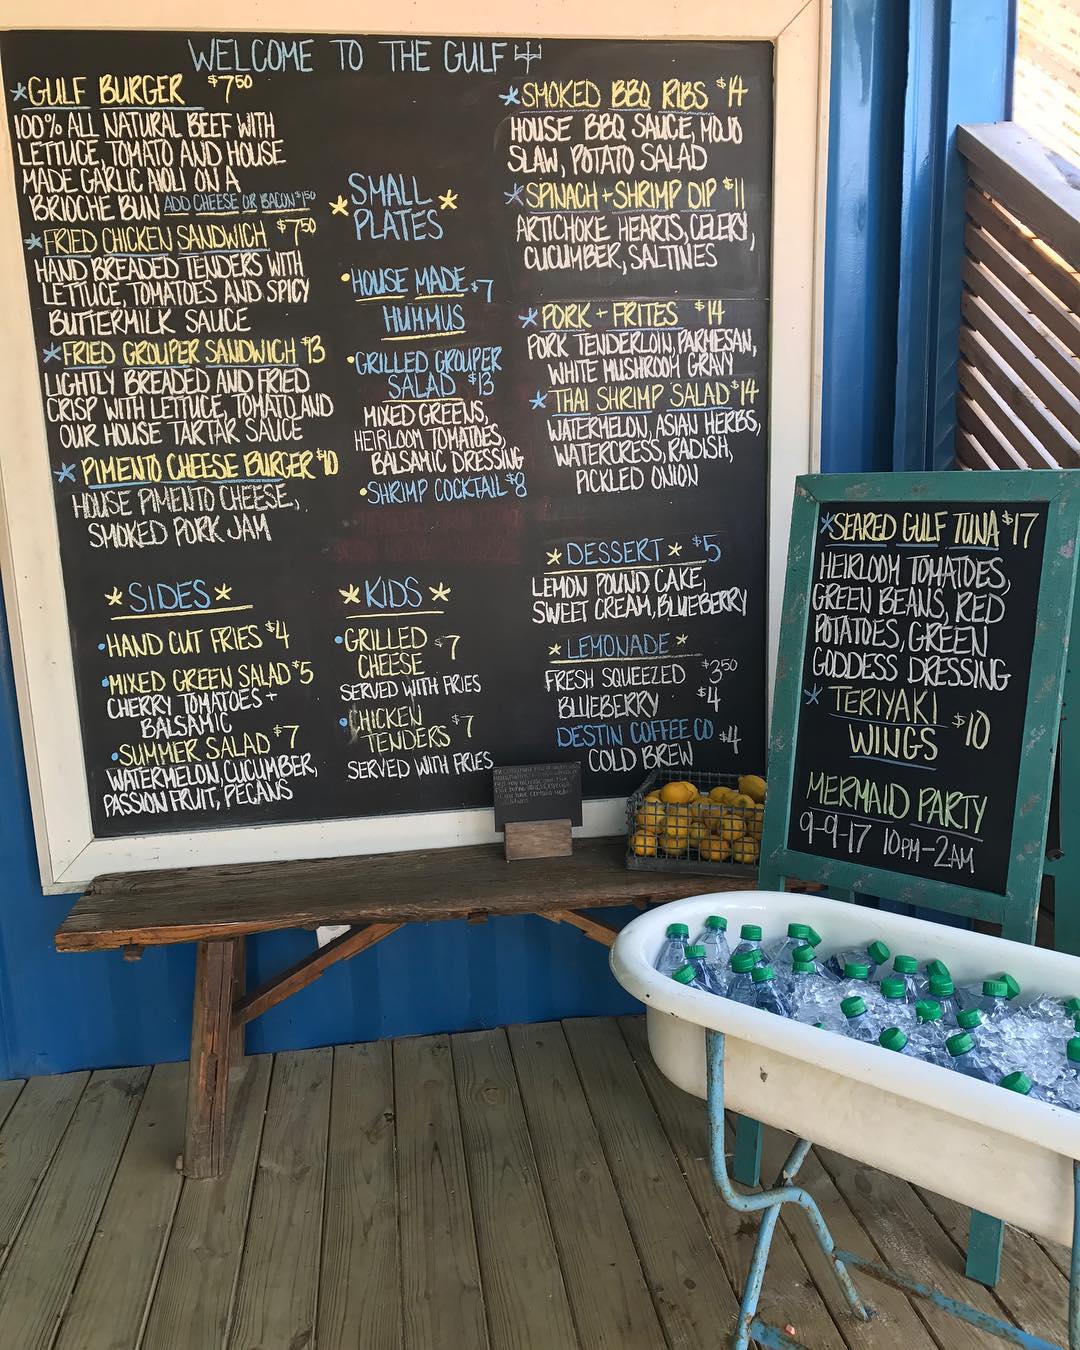 WELCOME TO THE GULF
*GULF BURGER $7.50
100% ALL NATURAL BEEF WITH
LETTUCE, TOMATO AND HOUSE
MADE GARLIC AIOLI ON A
BRIOCHE BUN ADD CHEESE OR BACON $1.50
*FRIED CHICKEN SANDWICH $7.50
HAND BREADED TENDERS WITH
LETTUCE, TOMATOES AND SPICY
BUTTERMILK SAUCE
*FRIED GROUPER SANDWICH $13
LIGHTLY BREADED AND FRIED
CRISP WITH LETTUCE, TOMATO AND
OUR HOUSE TARTAR SAUCE
*PIMENTO CHEESE BURGER $10
HOUSE PIMENTO CHEESE,
SMOKED PORK JAM
*SIDES*
•HAND CUT FRIES $4
•MIXED GREEN SALAD $5
CHERRY TOMATOES +
BALSAMIC
•SUMMER SALAD $7
WATERMELON, CUCUMBER,
PASSION FRUIT, PECANS
*SMALL
PLATES*
•HOUSE MADE $7
HUMMUS
•GRILLED GROUPER
SALAD $13
MIXED GREENS,
HEIRLOOM TOMATOES,
BALSAMIC DRESSING
•SHRIMP COCKTAIL $8
*KIDS*
•GRILLED $7
CHEESE
SERVED WITH FRIES
•CHICKEN $7
TENDERS
SERVED WITH FRIES
*SMOKED BBQ RIBS $14
HOUSE BBQ SAUCE, MOJO
SLAW, POTATO SALAD
*SPINACH + SHRIMP DIP $11
ARTICHOKE HEARTS, CELERY,
CUCUMBER, SALTINES
*PORK + FRITES $14
PORK TENDERLOIN, PARMESAN,
WHITE MUSHROOM GRAVY
*THAI SHRIMP SALAD $14
WATERMELON, ASIAN HERBS,
WATERCRESS, RADISH,
PICKLED ONION
*DESSERT* $5
LEMON POUND CAKE,
SWEET CREAM, BLUEBERRY
*LEMONADE*
FRESH SQUEEZED $3.50
BLUEBERRY $4
DESTIN COFFEE CO $4
COLD BREW
*SEARED GULF TUNA $17
HEIRLOOM TOMATOES,
GREEN BEANS, RED
POTATOES, GREEN
GODDESS DRESSING
*TERIYAKI
WINGS $10
MERMAID PARTY
9-9-17 10PM-2AM